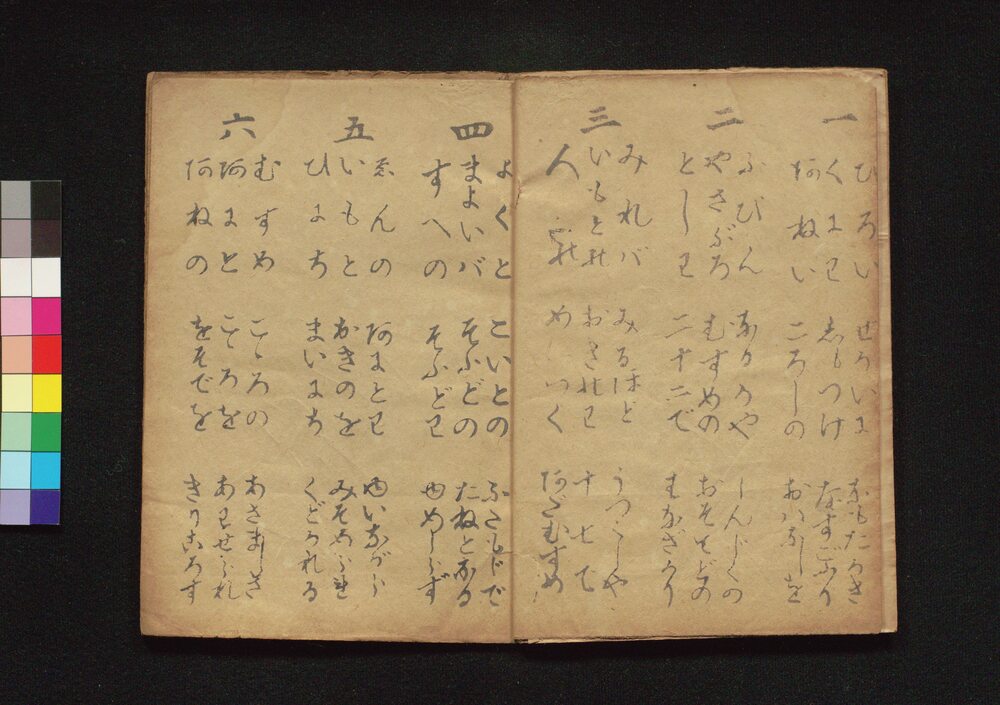 一
ひろい せかいに なもたかき
くにわ しもつけ なすごふり
あねい ころしの おはなしを
二
ふびん なるかや しんじくの
やさぶろ むすめの おそでどの
としわ 二十二で わかざかり
三
みれバ みるほど うつくしや
いもとの おきのわ 十七で
人の めにつく あだむすめ
四
よくと こいとの ふたもじで
まよいバ そふどの たねとなる
すへの そふどわ ゆめしらず
五
ゑんの あにとわ ゆいながら
いもと おきのを みそめられ
ひにち まいにち くどかれる
六
むすめ こゝろの あさましさ
あにと こゝろを あわせられ
あねの をそでを きりころす